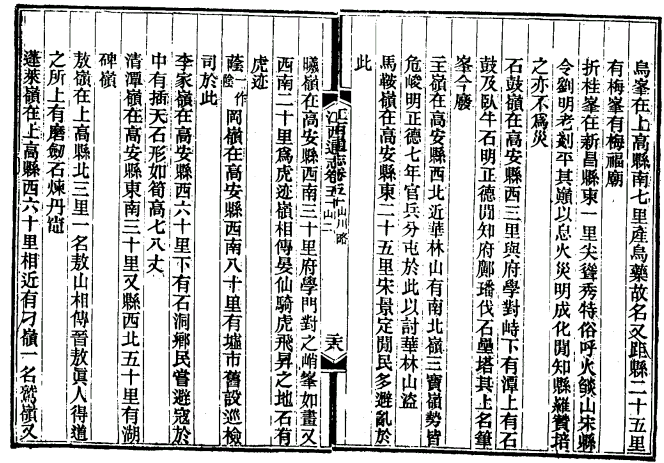 烏峯在上高縣南七里產烏藥故名又距縣二十五里
有梅峯有梅福廟
折桂峯在新昌縣東一里尖聳秀特俗呼火燄山宋縣
令劉明老剗平其巔以息火災明成化閒知縣羅贊培
之亦不爲災
石鼓嶺在高安縣西三里與府學對峙下有潭上有石
鼓及臥牛石明正德閒知府鄺璠伐石壘塔其上名筆
峯今廢
王嶺在高安縣西北近華林山有南北嶺三寶嶺勢皆
危峻明正德七年官兵分屯於此以討華林山盜
馬鞍嶺在高安縣東二十五里宋景定閒民多避亂於
此
江西通志卷五十 山川略 山二 二六
曦嶺在高安縣西南三十里府學門對之峭峯如畫又
西南二十里爲虎迹嶺相傳晏仙騎虎飛昇之地石有
虎迹
蔭一作陰岡嶺在高安縣西南八十里有墟市舊設巡檢
司於此
李家嶺在高安縣西六十里下有石洞鄉民嘗避寇於
中有插天石形如筍高七八丈
清潭嶺在高安縣東南三十里又縣西北五十里有湖
碑嶺
敖嶺在上高縣北三里一名敖山相傳晉敖眞人得道
之所上有磨劒石煉丹竈
蓬萊嶺在上高縣西六十里相近有刁嶺一名鵞嶺又